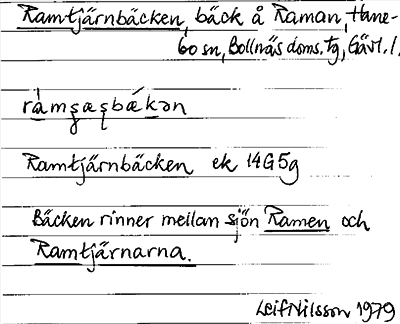 Ramtjärnbäcken, bäck å Raman, Hane-
bo sn, Bollnäs doms. tg, Gävl. l.
Ramtjärnbäcken ek 14G5g
Bäcken rinner mellan sjön Ramen och
Ramtjärnarna.
Leif Nilsson 1979